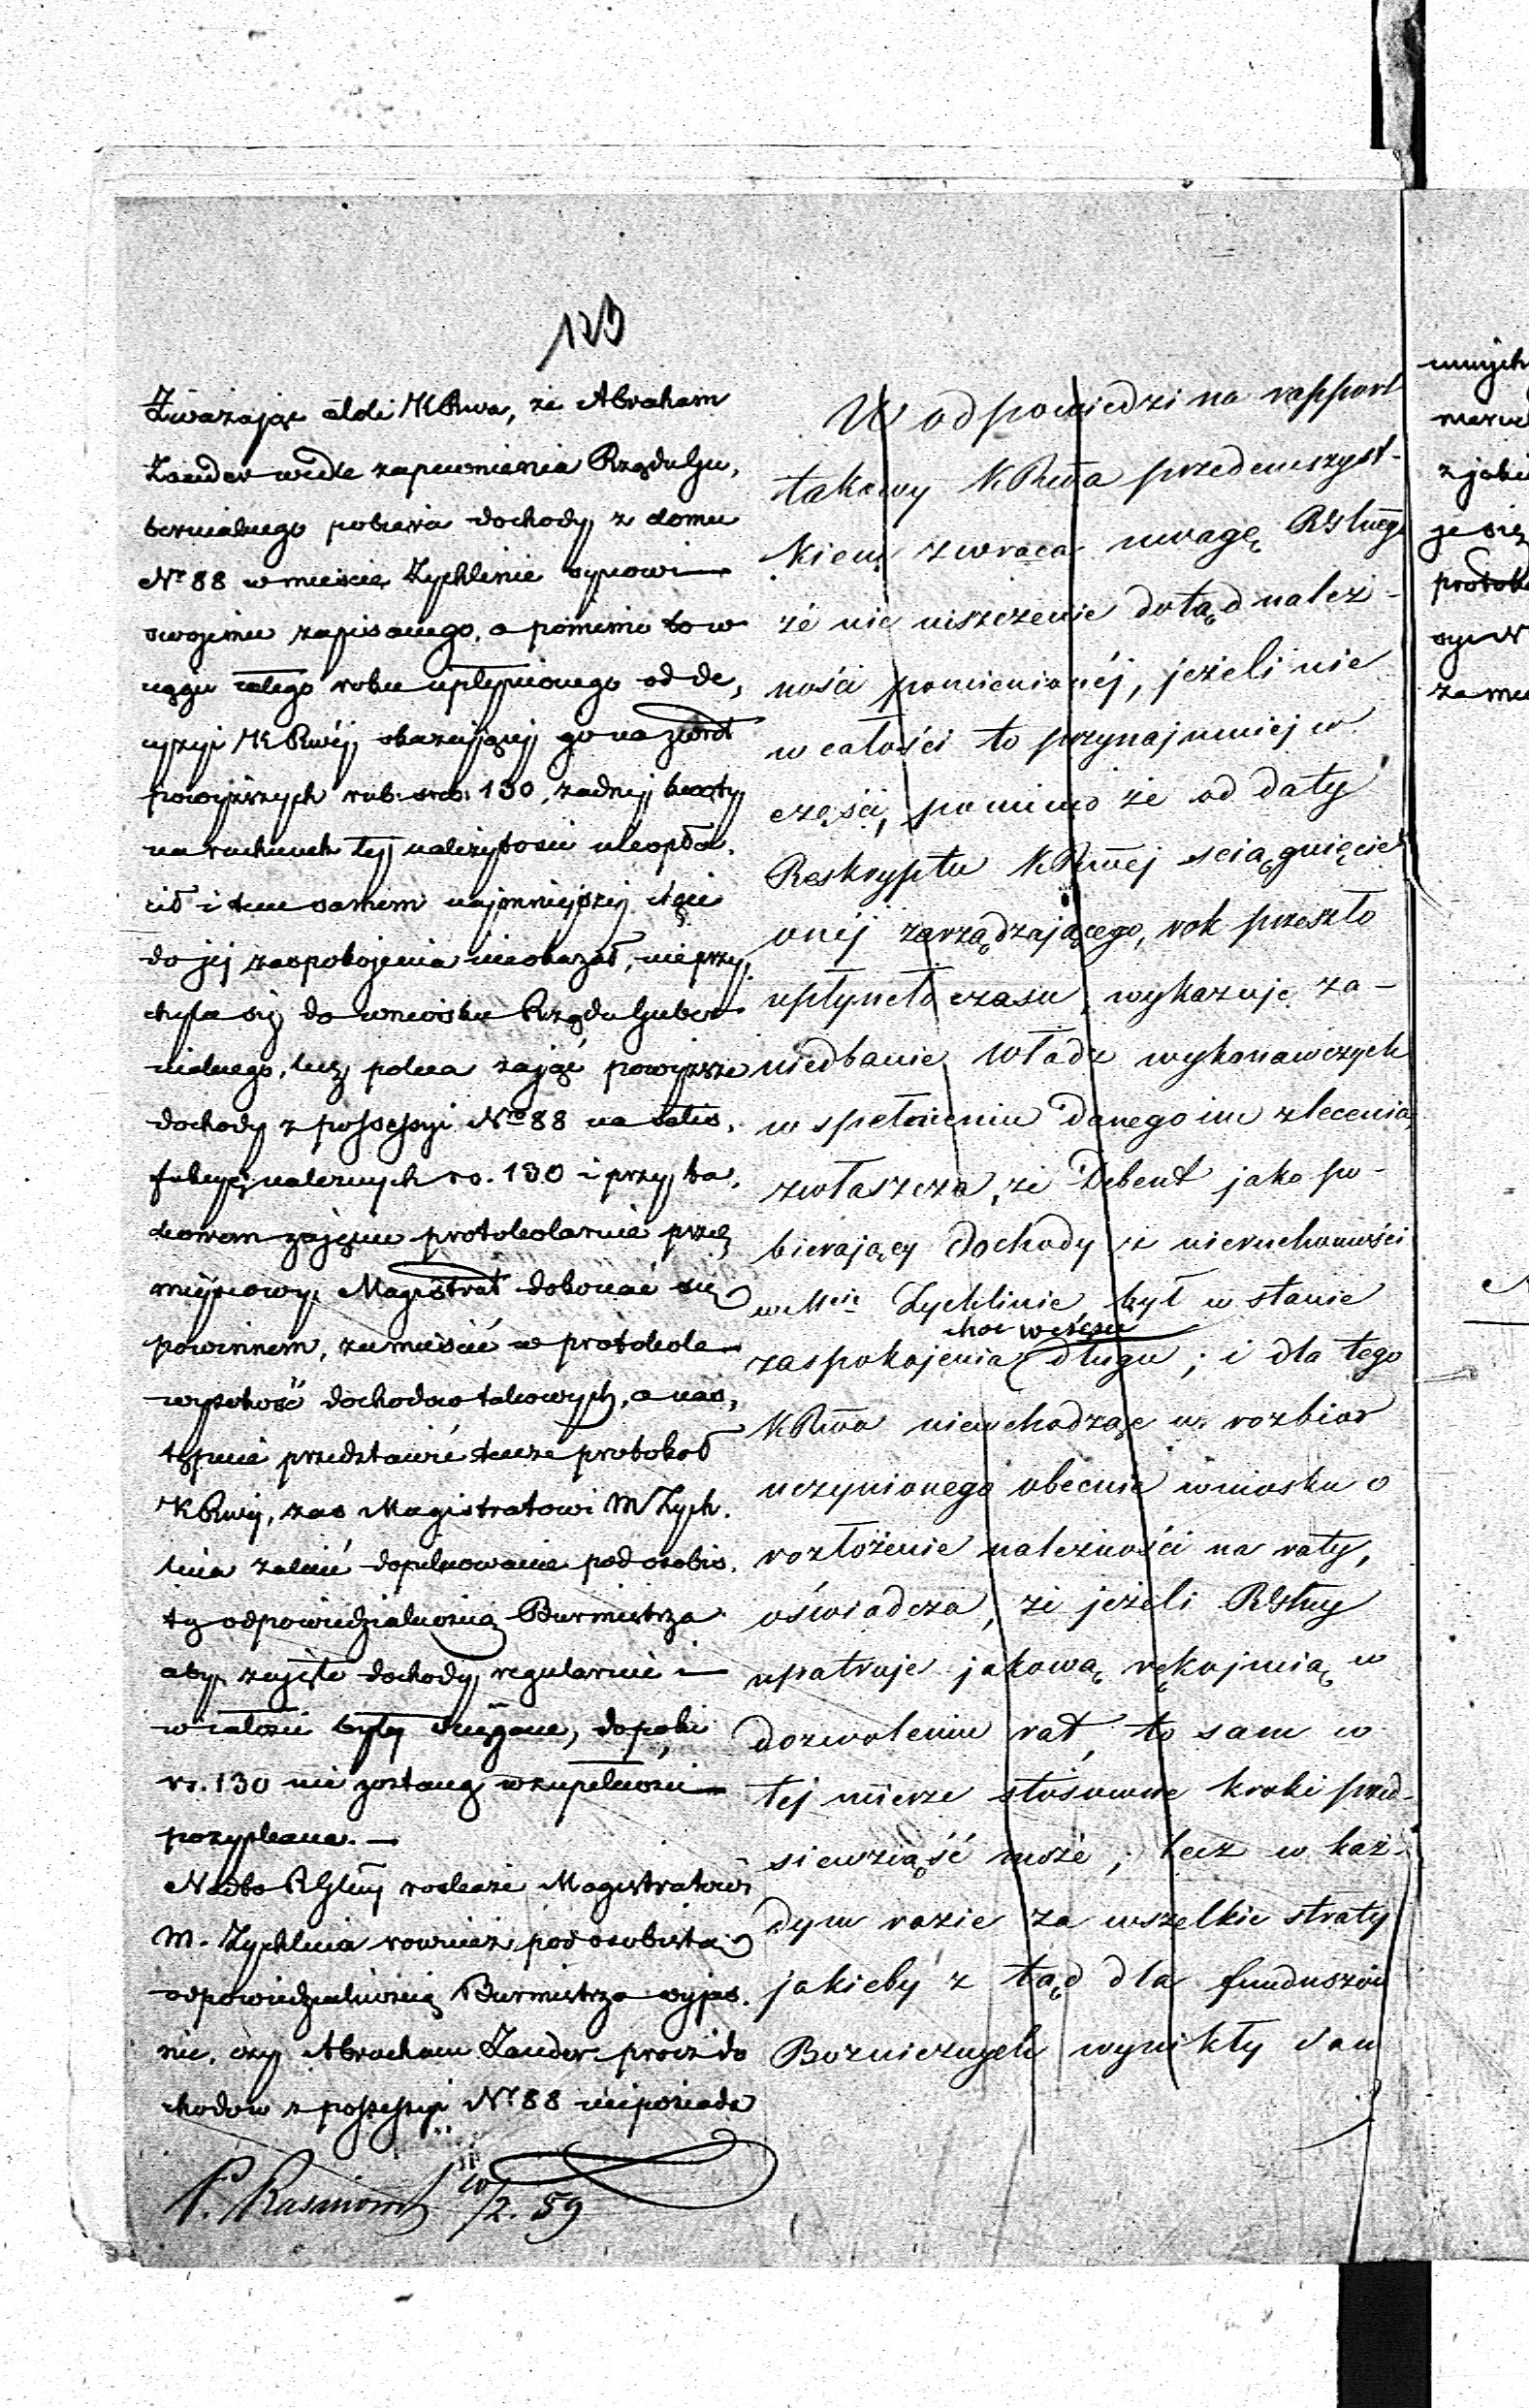 123
Zważając atoli KRwa, że Abraham
Zander wedle zapewnienia Rządu Gu,
bernialnego pobiera dochody z domu
Nr 88 w mieście Żychlinie synowi
swojemu zapisanego, a pomimo to w
ciągu całego roku upłynionego od de,
cyzyi KRwéj, skazującej go na zwrot
powyższych rub. sreb. 130, żadnéj kwoty
na rachunek téj należytości nieopła,
cił i tem samem najmniejszéj chęci
do jéj zaspokojenia nieokazał, nieprzy,
chyla się do wniosku Rządu Guber
nialnego, lecz poleca zająć powyższe
dochody z possessyi No 88 na satis,
fakcyę należnych rs. 130 i przy ta,
kowem zajęciu protokolarnie przez
miejscowy Magistrat dokonać się
powinnem, zamieścić w protokole
wysokość dochodów takowych, a nas,
tępnie przedstawić tenże protokół
KRwéj, zaś Magistratowi M Żych,
lina zalecić dopilnowanie pod osobis,
tą odpowiedzialnością Burmistrza
aby zajęte dochody regularnie i
w całości były ściągane, dopóki
rs. 130 nie zostaną w zupełności
pozyskane.
Nadto RGlny rozkaże Magistratowi
M. Żychlina również pod osobistą
odpowiedzialnością Burmistrza wyjaś,
nić, czy Abraham Zander prócz do
chodów z possessyi Nr 88 nieposiada
10/2. 59
W odpowiedzi na rapport
takowy KRwa przedewszyst-
kiem zwraca uwagę RGlnego
że nie uiszczenie dotąd należ-
ności pomienionéj, jeżeli nie
w całości to przynajmniej w
części, pomimo że od daty
Reskryptu KRwej ściągnięcie
onéj zarządzającego, rok przeszło
upłynęło czasu, wykazuje za-
niedbanie Władz wykonawczych
w spełnieniu danego im zlecenia,
zwłaszcza, że Debent jako po-
bierający dochody z nieruchomości
w Mcie Żychlinie, był w stanie
choć w części
zaspokojenia długu; i dla tego
KRwa niewchodząc w rozbiór
uczynionego obecnie wniosku o
rozłożenie należności na raty,
oświadcza, że jeżeli RGlny
upatruje jakową rękojmią w
dozwoleniu rat, to sam w
téj mierze stosowne kroki przed-
siewziąść może; lecz w każ-
dym razie za wszelkie straty
jakieby z tąd dla funduszów
Bożnicznych wynikły sam